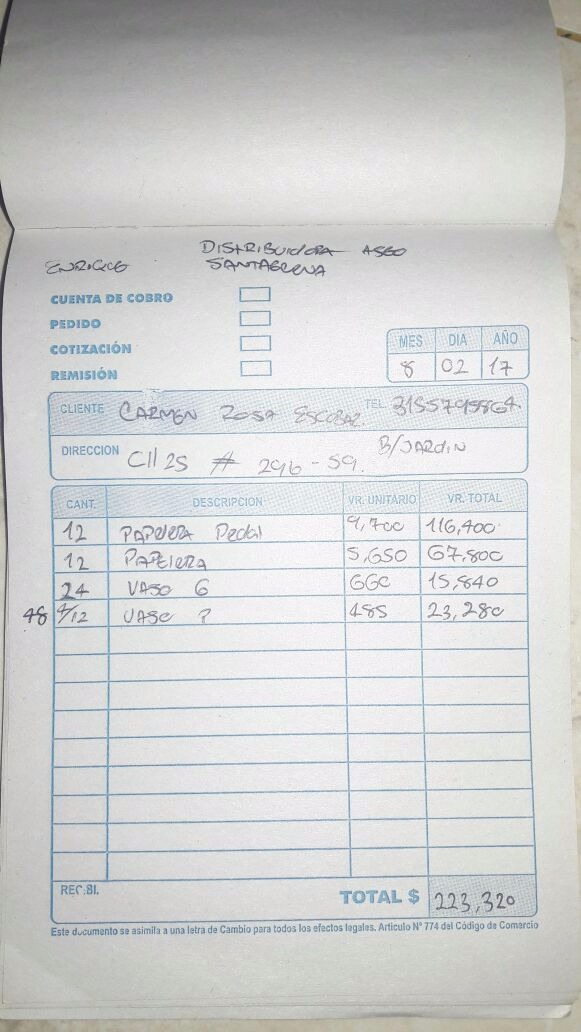 DISTRIBUIDORA ASEO
ENRIQUE SANTAELENA
CUENTA DE COBRO
PEDIDO
COTIZACIÓN
REMISIÓN
MES DIA AÑO
8 02 17
CLIENTE CARMEN ROSA ESCOBAR. TEL. 3155795864
DIRECCION Cll 25 # 29B-59. B/JARDIN
CANT. DESCRIPCION VR. UNITARIO VR. TOTAL
12 PAPELERA Pedal 9,700 116,400
12 PAPELERA 5,650 67,800
24 VASO 6 660 15,840
48 4/12 VASO 7 485 23,280
REC:BI. TOTAL $ 223,320
Este documento se asimila a una letra de Cambio para todos los efectos legales. Articulo Nº 774 del Código de Comercio